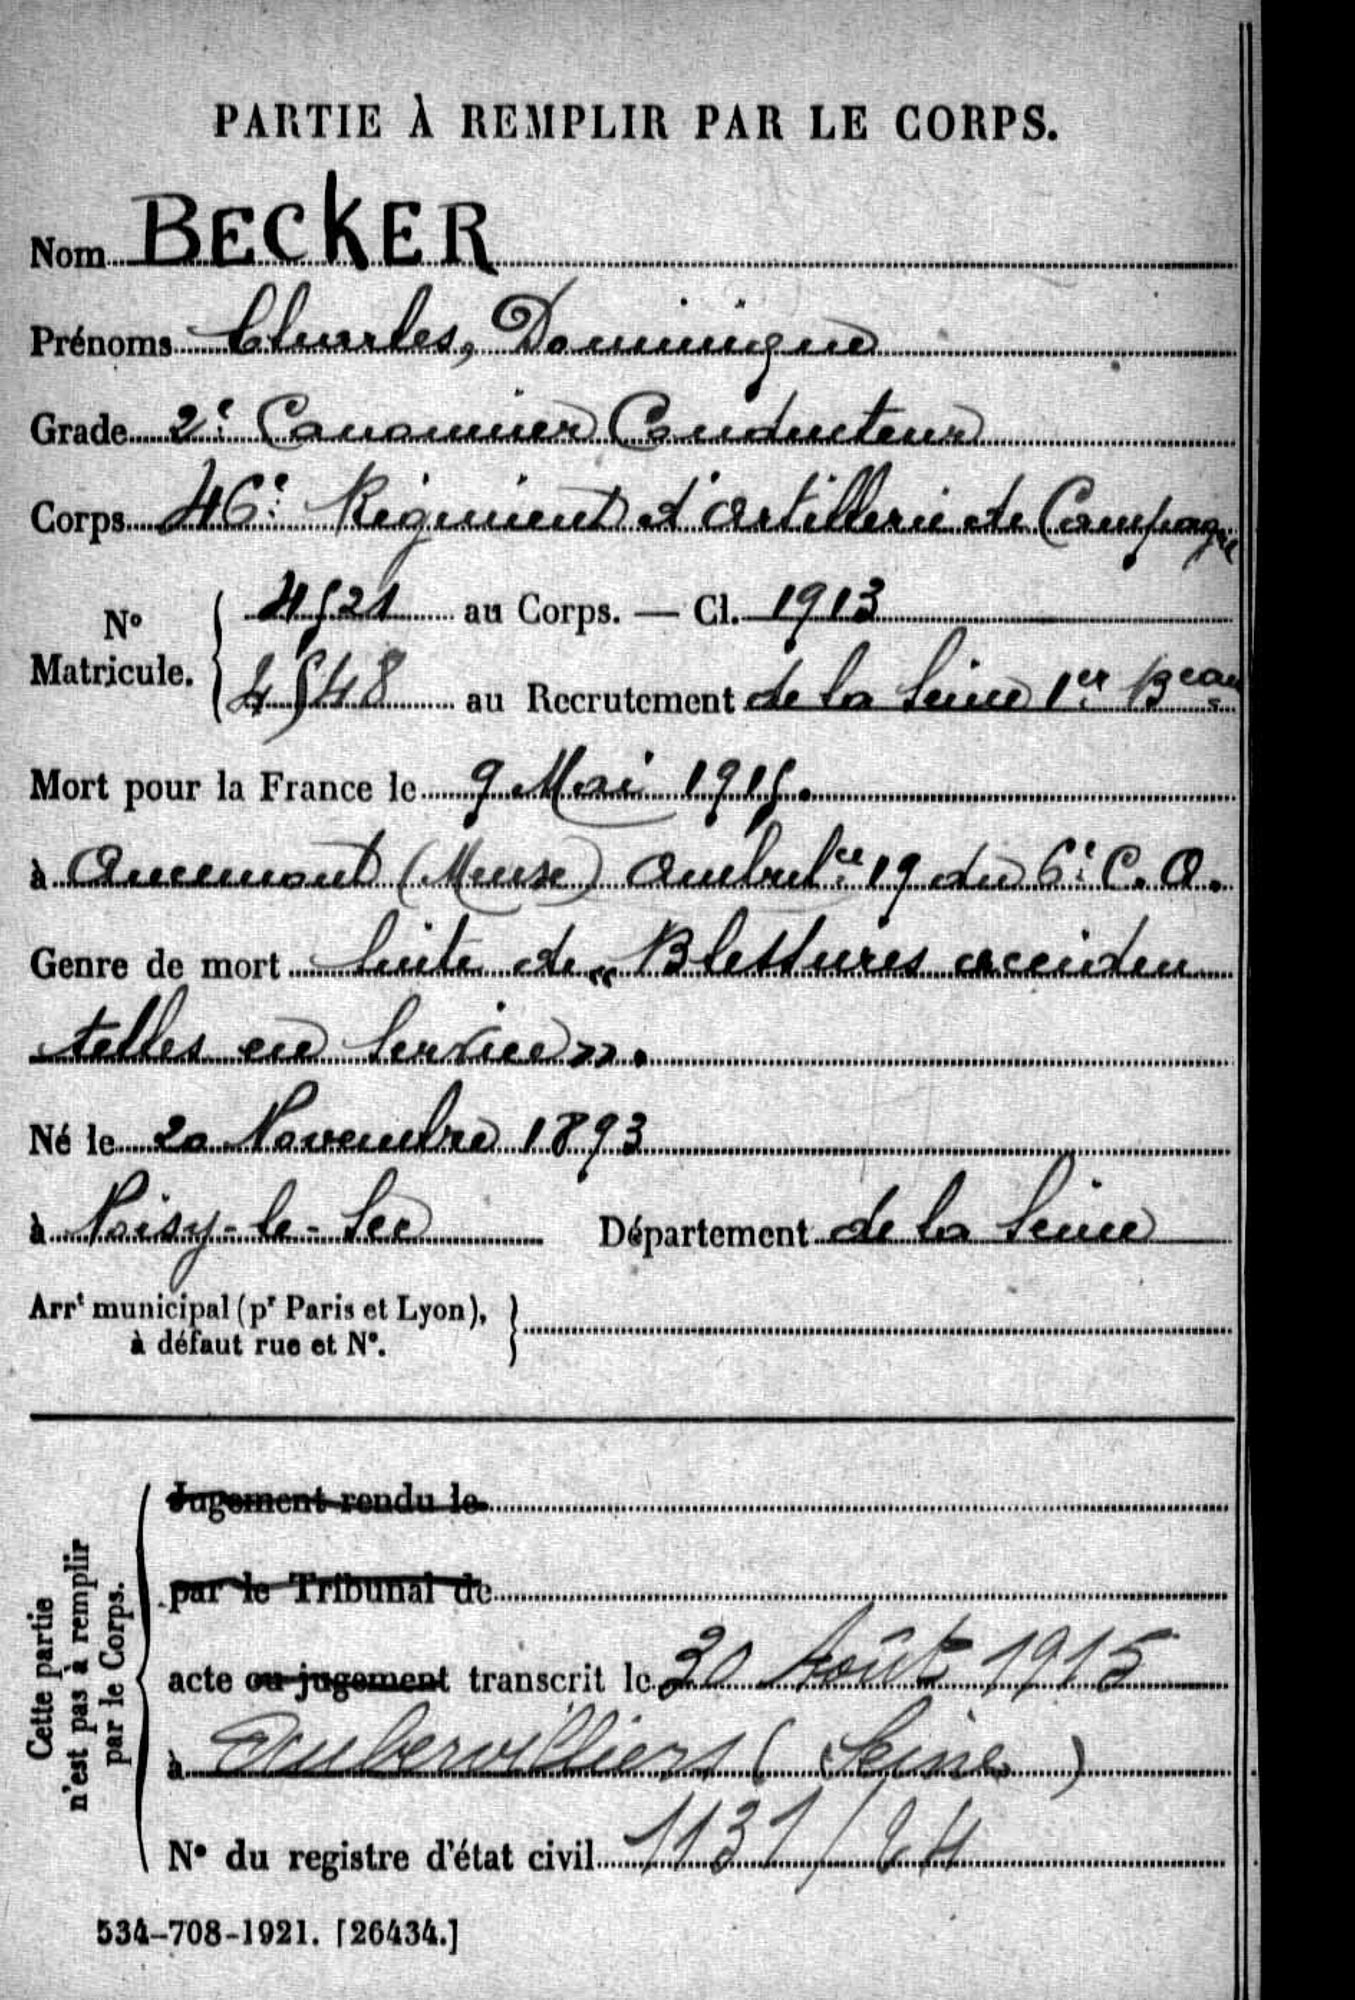 PARTIE À REMPLIR PAR LE CORPS.
Nom BECKER
Prénoms Charles, Dominique
Grade 2e Canonnier Conducteur
Corps 46e Régiment d'Artillerie de Campagne
No Matricule. 4521 au Corps. — Cl. 1913
4548 au Recrutement de la Seine 1er Beau
Mort pour la France le 9 Mai 1915.
à Ancemont (Meuse) Ambulce 19 du 6e C. A.
Genre de mort Suite de « Blessures acciden
telles en Service ».
Né le 20 Novembre 1893
à Noisy-le-Sec Département de la Seine
Arrt municipal (pr Paris et Lyon),
à défaut rue et No.
Cette partie
n'est pas à remplir
par le Corps.
Jugement rendu le
par le Tribunal de
acte ou jugement transcrit le 30 Août 1915
à Aubervilliers (Seine)
No du registre d'état civil 1131/24
534-708-1921. [26434.]